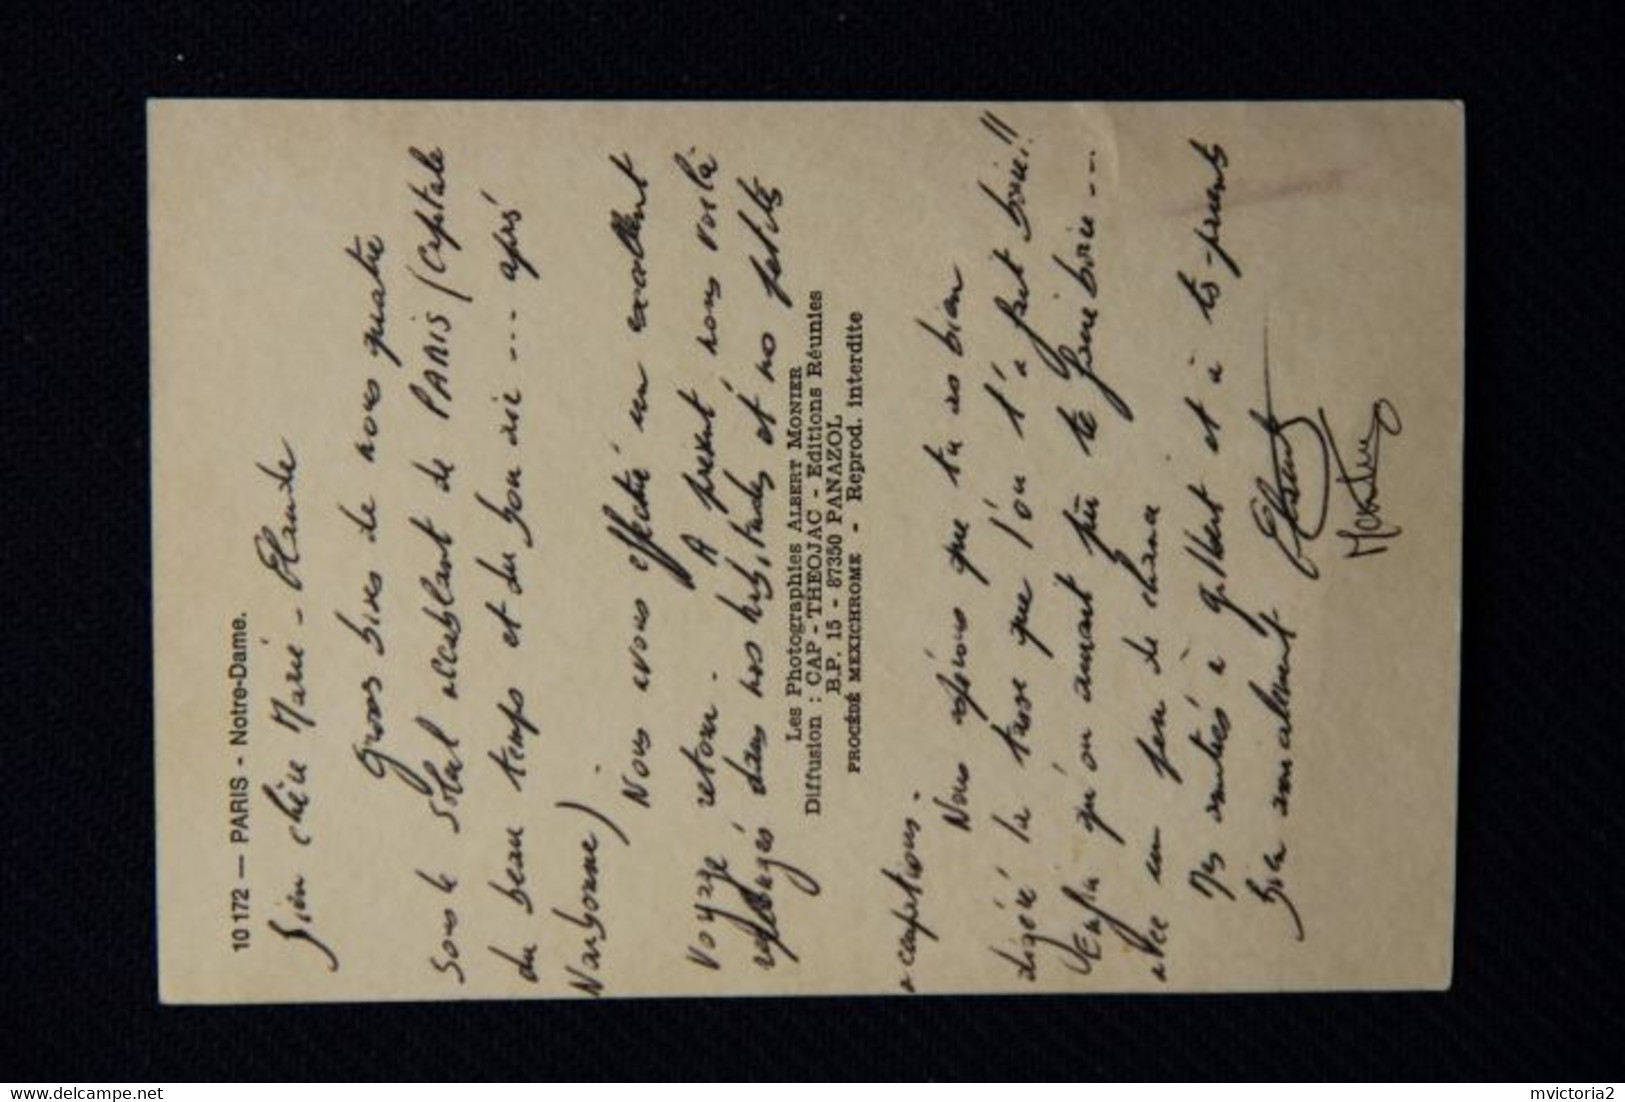 10 172 — PARIS - Notre-Dame.
Bien chère Marie-Claude
Grosses bises de nous quatre
sous le soleil accablant de PARIS (capitale
du beau temps et du bon air --- après
Narbonne)
Nous avons effectué un excellent
voyage retour. A présent nous voilà
replongés dans nos habitudes et nos petites
Les Photographies ALBERT MONIER
Diffusion : CAP-THEOJAC - Editions Réunies
B.P. 15 - 87350 PANAZOL
PROCÉDÉ MEXICHROME - Reprod. interdite
occupations.
Nous espérons que tu as bien
digéré la tasse que l'on t'a fait boire!!
Enfin qu'on aurait pu te faire boire ---
avec un peu de chance
Mes amitiés à Gilbert et à tes parents
Bien amicalement
delcampe.net
mvictoria2